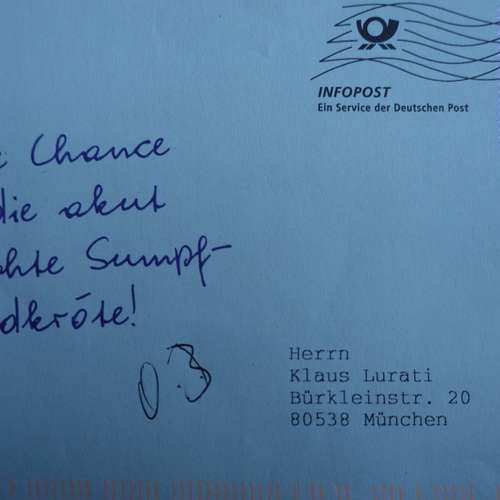 INFOPOST
Ein Service der Deutschen Post
Chance
die akut
Sumpf-
dkröte!
03
Herrn
Klaus Lurati
Bürkleinstr. 20
80538 München